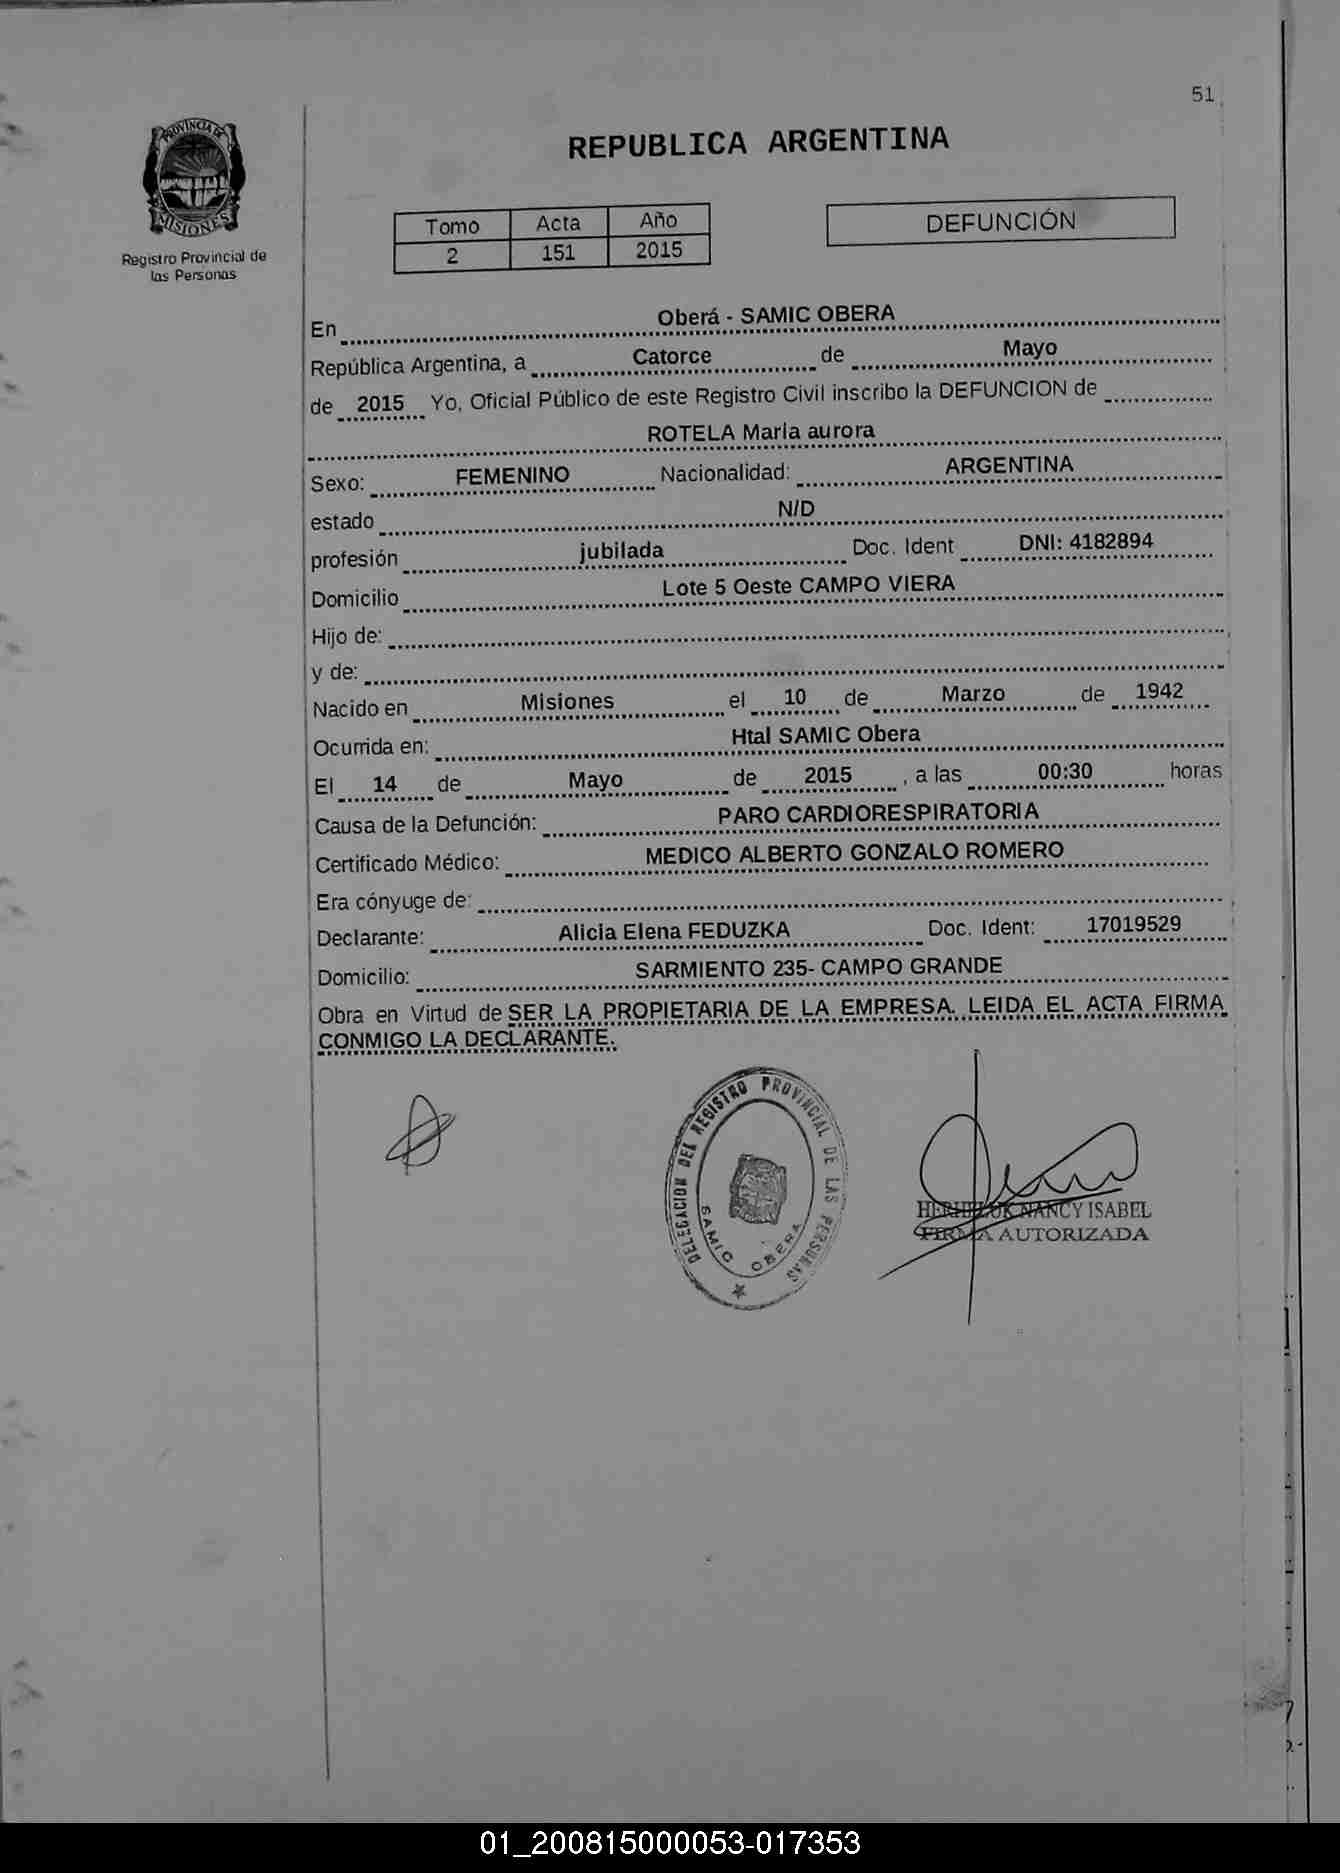 51
PROVINCIA DE
MISIONES
Registro Provincial de
las Personas
REPUBLICA ARGENTINA
Tomo Acta Año
2 151 2015
DEFUNCIÓN
En Oberá - SAMIC OBERA
República Argentina, a Catorce de Mayo
de 2015 Yo, Oficial Público de este Registro Civil inscribo la DEFUNCION de
ROTELA Maria aurora
Sexo: FEMENINO Nacionalidad: ARGENTINA
estado N/D
profesión jubilada Doc. Ident DNI: 4182894
Domicilio Lote 5 Oeste CAMPO VIERA
Hijo de:
y de:
Nacido en Misiones el 10 de Marzo de 1942
Ocurrida en: Htal SAMIC Obera
El 14 de Mayo de 2015, a las 00:30 horas
Causa de la Defunción: PARO CARDIORESPIRATORIA
Certificado Médico: MEDICO ALBERTO GONZALO ROMERO
Era cónyuge de:
Declarante: Alicia Elena FEDUZKA Doc. Ident: 17019529
Domicilio: SARMIENTO 235- CAMPO GRANDE
Obra en Virtud de SER LA PROPIETARIA DE LA EMPRESA. LEIDA EL ACTA FIRMA
CONMIGO LA DECLARANTE.
DELEGACION DEL REGISTRO PROVINCIAL DE LAS PERSONAS
SAMIC OBERA
NANCY ISABEL
FIRMA AUTORIZADA
01_200815000053-017353